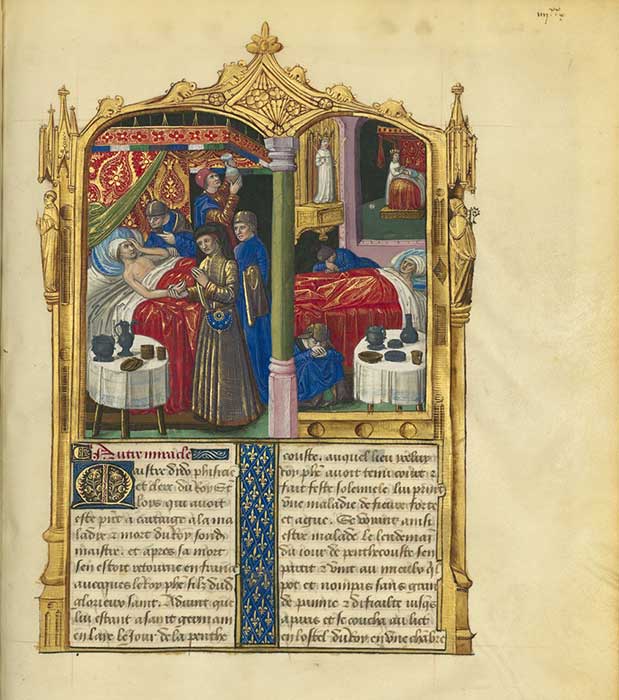 Autre miracle
Maistre dudo phisicie
et clerc du Roy St
loys qui auoit
este pnt a cartaige a la ma
ladie & mort du Roy sond
maistre. et apres sa mort
sen estoit retourne en france
auecques le Roy phe filz dud
glorieux saint. Aduint que
lui estant a saint germain
en laie le Jour de la penthe
couste. auquel lieu
roy phe auoit tenu court &
fait feste solennele lui print
vne maladie de fieure forte
et ague. Se voiant ainsi
estre malade le lendemai
du iour de penthecouste sen
partit & vint au mieulx ql
pot et nompas sans gran
de paine & difficulte iusqs
a paris et se coucha au lict
en lostel du Roy en vne chabre